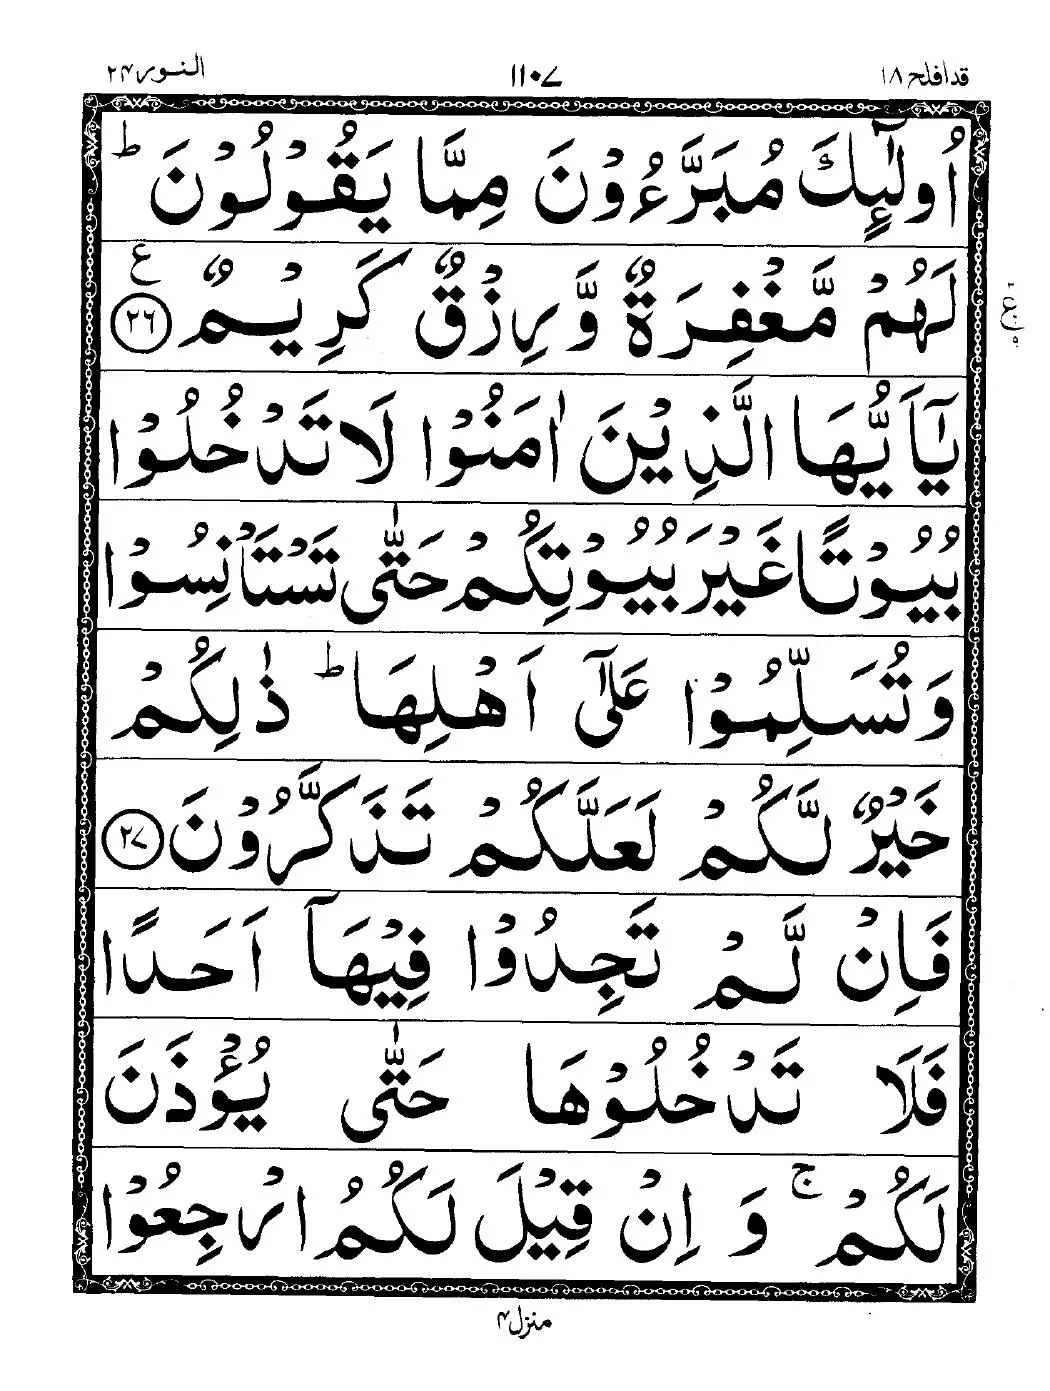 قد افلح ۱۸
۱۱۰۷
النور ۲۴
اُولٰٓئِكَ مُبَرَّءُوْنَ مِمَّا يَقُوْلُوْنَ ؕ
لَهُمْ مَّغْفِرَةٌ وَّ رِزْقٌ كَرِيْمٌ ﴿۲۶﴾ ع
يٰۤاَيُّهَا الَّذِيْنَ اٰمَنُوْا لَا تَدْخُلُوْا
بُيُوْتًا غَيْرَ بُيُوْتِكُمْ حَتّٰى تَسْتَاْنِسُوْا
وَتُسَلِّمُوْا عَلٰٓى اَهْلِهَا ؕ ذٰلِكُمْ
خَيْرٌ لَّكُمْ لَعَلَّكُمْ تَذَكَّرُوْنَ ﴿۲۷﴾
فَاِنْ لَّمْ تَجِدُوْا فِيْهَاۤ اَحَدًا
فَلَا تَدْخُلُوْهَا حَتّٰى يُؤْذَنَ
لَكُمْ ۚ وَ اِنْ قِيْلَ لَكُمُ ارْجِعُوْا
منزل ۴